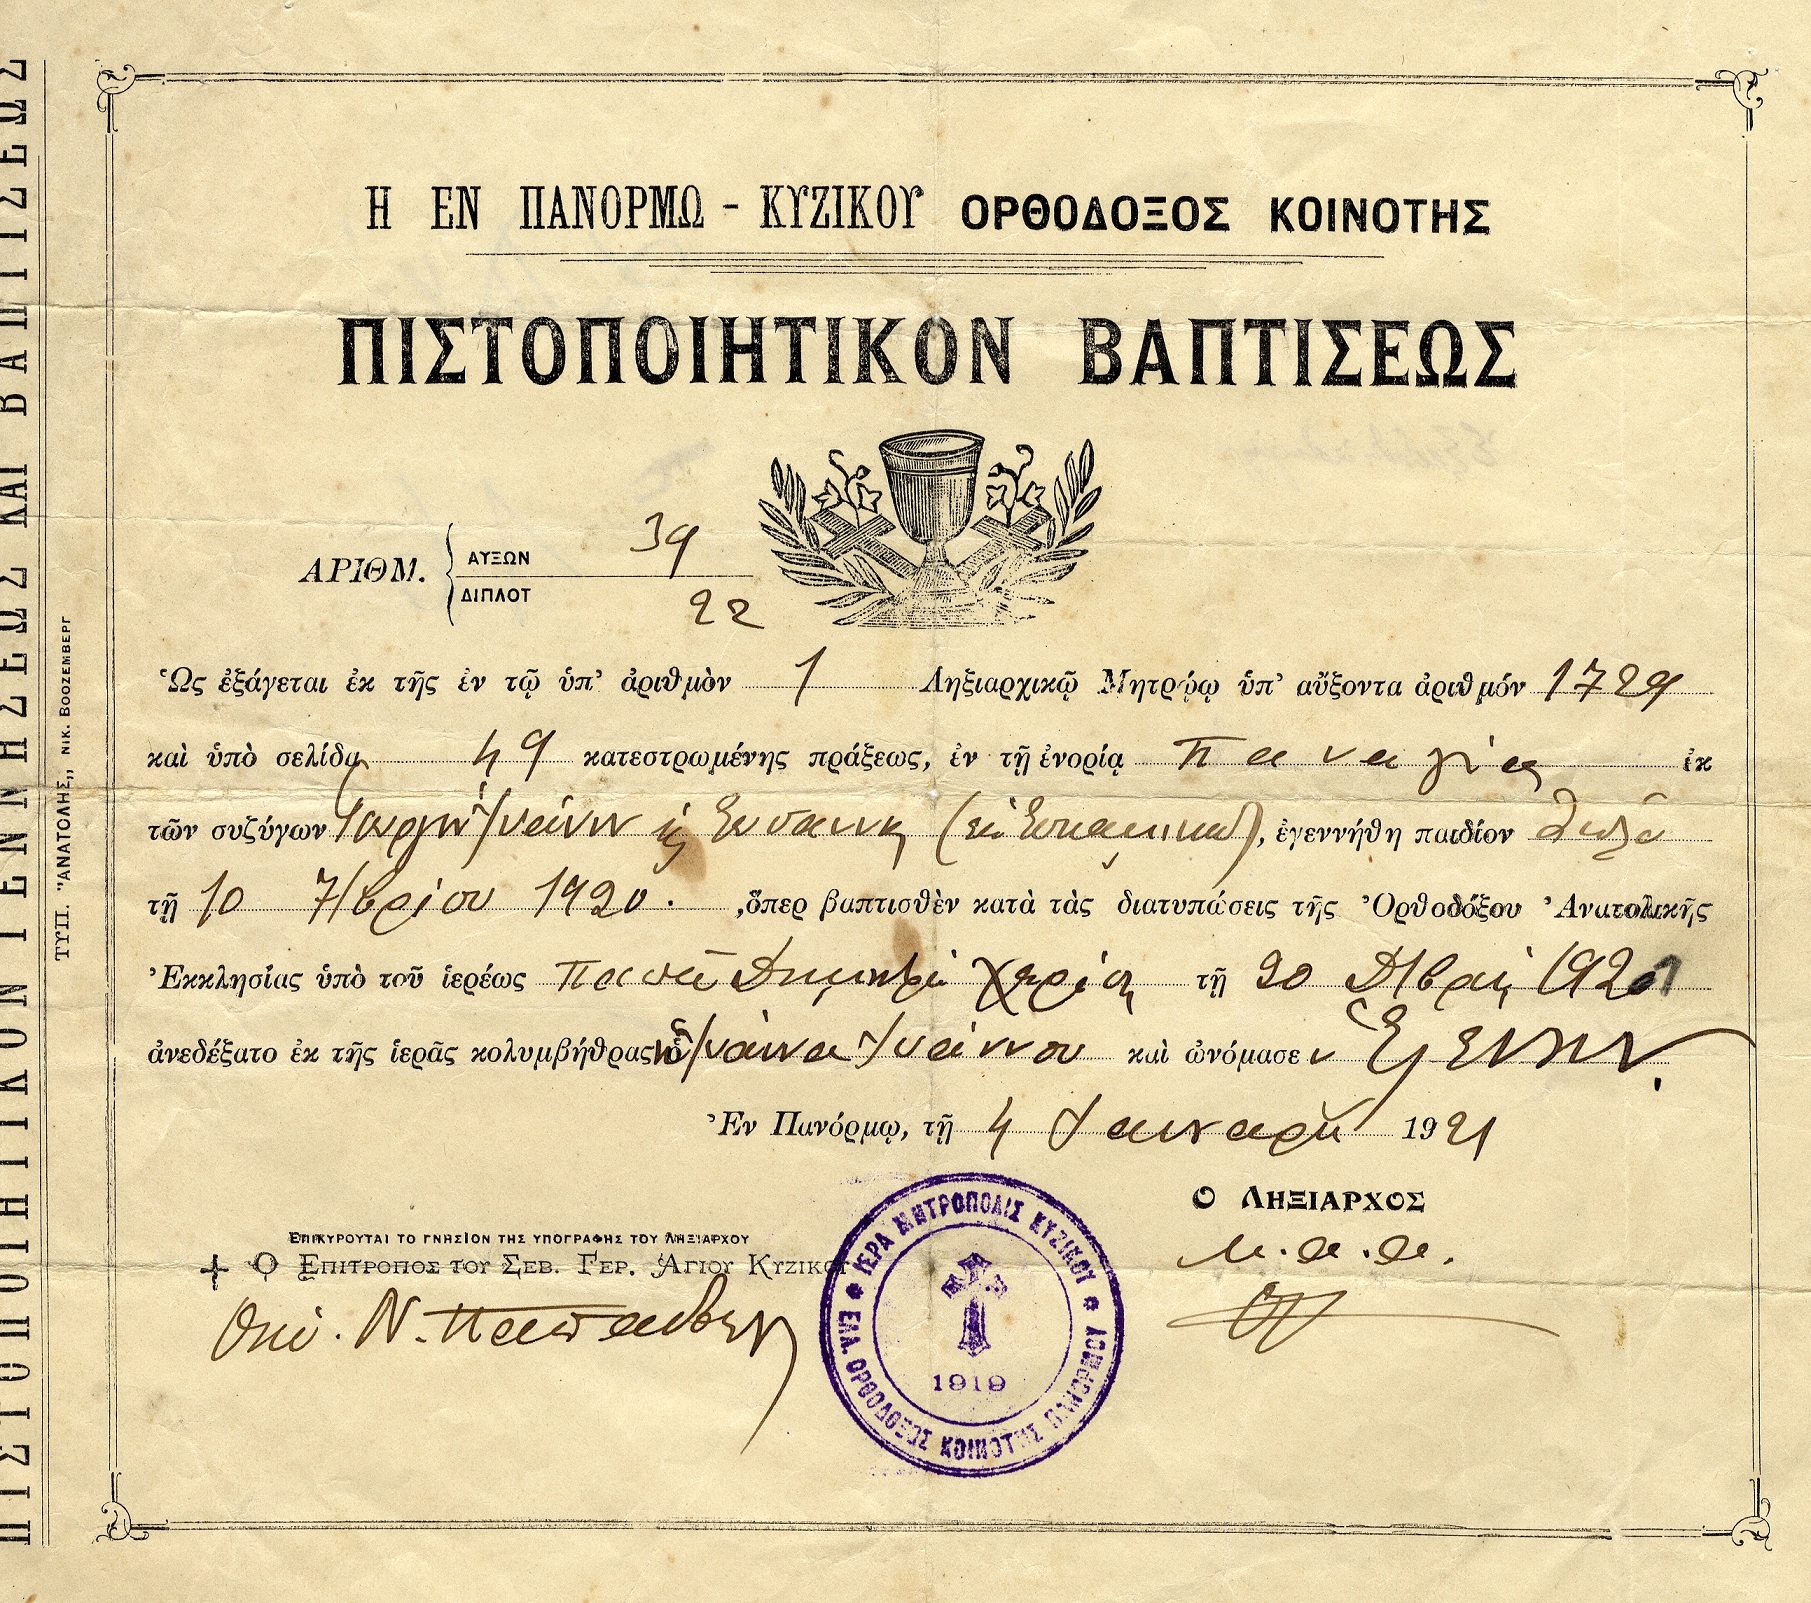 Η ΕΝ ΠΑΝΟΡΜΩ - ΚΥΖΙΚΟΥ ΟΡΘΟΔΟΞΟΣ ΚΟΙΝΟΤΗΣ
ΠΙΣΤΟΠΟΙΗΤΙΚΟΝ ΒΑΠΤΙΣΕΩΣ
ΑΡΙΘΜ. ΑΥΞΩΝ 39
ΔΙΠΛΟΤ 22
Ὡς ἐξάγεται ἐκ τῆς ἐν τῷ ὑπ' ἀριθμὸν 1 Ληξιαρχικῷ Μητρῴῳ ὑπ' αὔξοντα ἀριθμόν 1729
καὶ ὑπὸ σελίδα 49 κατεστρωμένης πράξεως, ἐν τῇ ἐνορίᾳ Παναγίας ἐκ
τῶν συζύγων, ἐγεννήθη παιδίον θῆλυ
τῇ 10 7/βρίου 1920. ,ὅπερ βαπτισθὲν κατὰ τὰς διατυπώσεις τῆς Ὀρθοδόξου Ἀνατολικῆς
Ἐκκλησίας ὑπὸ τοῦ ἱερέως παπᾶ Δημητρί τῇ 20 1920
ἀνεδέξατο ἐκ τῆς ἱερᾶς κολυμβήθρας καὶ ὠνόμασεν Ἑλένην.
Ἐν Πανόρμῳ, τῇ 4 1921
Ο ΛΗΞΙΑΡΧΟΣ
ΕΠΙΚΥΡΟΥΤΑΙ ΤΟ ΓΝΗΣΙΟΝ ΤΗΣ ΥΠΟΓΡΑΦΗΣ ΤΟΥ ΛΗΞΙΑΡΧΟΥ
Ο ΕΠΙΤΡΟΠΟΣ ΤΟΥ ΣΕΒ. ΓΕΡ. ΑΓΙΟΥ ΚΥΖΙΚΟΥ
ΙΕΡΑ ΜΗΤΡΟΠΟΛΙΣ ΚΥΖΙΚΟΥ
ΕΛΛ. ΟΡΘΟΔΟΞΟΣ ΚΟΙΝΟΤΗΣ ΠΑΝΟΡΜΟΥ
1919
ΠΙΣΤΟΠΟΙΗΤΙΚΟΝ ΓΕΝΝΗΣΕΩΣ ΚΑΙ ΒΑΠΤΙΣΕΩΣ
ΤΥΠ. "ΑΝΑΤΟΛΗΣ,, ΝΙΚ. ΒΟΟΣΕΜΒΕΡΓ